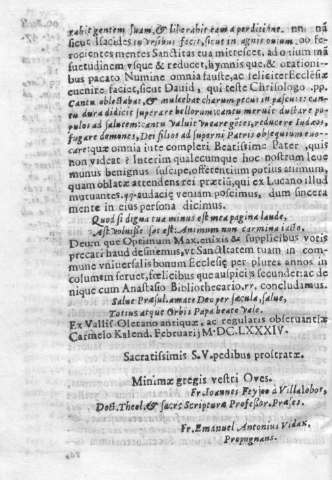 rabit gentem suam, & liberabit eam a perditione. nn nã
sicut Isacides in ovibus fecit, sicut in agnis ouium. oo fe-
rocientes mentes Sanctitas tua mitescet, ad ouium mã
suetudinem vsque & reducet, hymnis que, & orationi-
bus pacato Numine omnia fauste, ac feliciter Ecclesiæ
euenire faciet, sicut Dauid, qui teste Chrisologo .pp.
Cantu oblectabat, & mulcebat charum pecus in pascuis: can-
tu dura didicit superare bellorum: cantu meruit ductare po-
pulos ad salutem: cantu valuit vocare gētes, reducere Iudæos,
fugare dæmones, Dei filios ad superni Patris obsequium euo-
care: quæ omnia iute compleri Beatissime Pater, quis
non videat? Interim qualecumque hoc nostrum leue
munus benignus suscipe, offerentium potius animum,
quam oblatæ attendens rei pretiū, qui ex Lucano illud
mutuantes .qq. audacię veniam poscimus, dum sincera
mente in eius persona dicimus.
Quod si digna tua minus est mea pagina laude,
Ast voluisse sat est: Animum non carmina iacto.
Deum que Optimum Max. enixis & supplicibus votis
precari haud desinemus, vt Sanctitatem tuam in com-
mune vniuersalis bonum Ecclesię per plures annos in-
columem seruet, fœlicibus que auspicijs secundet: ac de
nique cum Anastasio Bibliothecario .rr. concludamus.
Salue Præsul, amate Deo per sæcula, salue,
Totius atque Orbis Papa beate Vale.
Ex Vallis Oletano antiquæ, ac regularis obseruantiæ
Carmelo Kalend. Februarij M.DC.LXXXIV.
Sacratissimis S.V. pedibus prostratæ.
Minimæ gregis vestri Oves.
Fr. Ioannes Feyjoo a Villalobos,
Doct. Theol. & sacræ Scripturæ Professor. Præses.
Fr. Emanuel Antonius Vidax,
Propugnans.